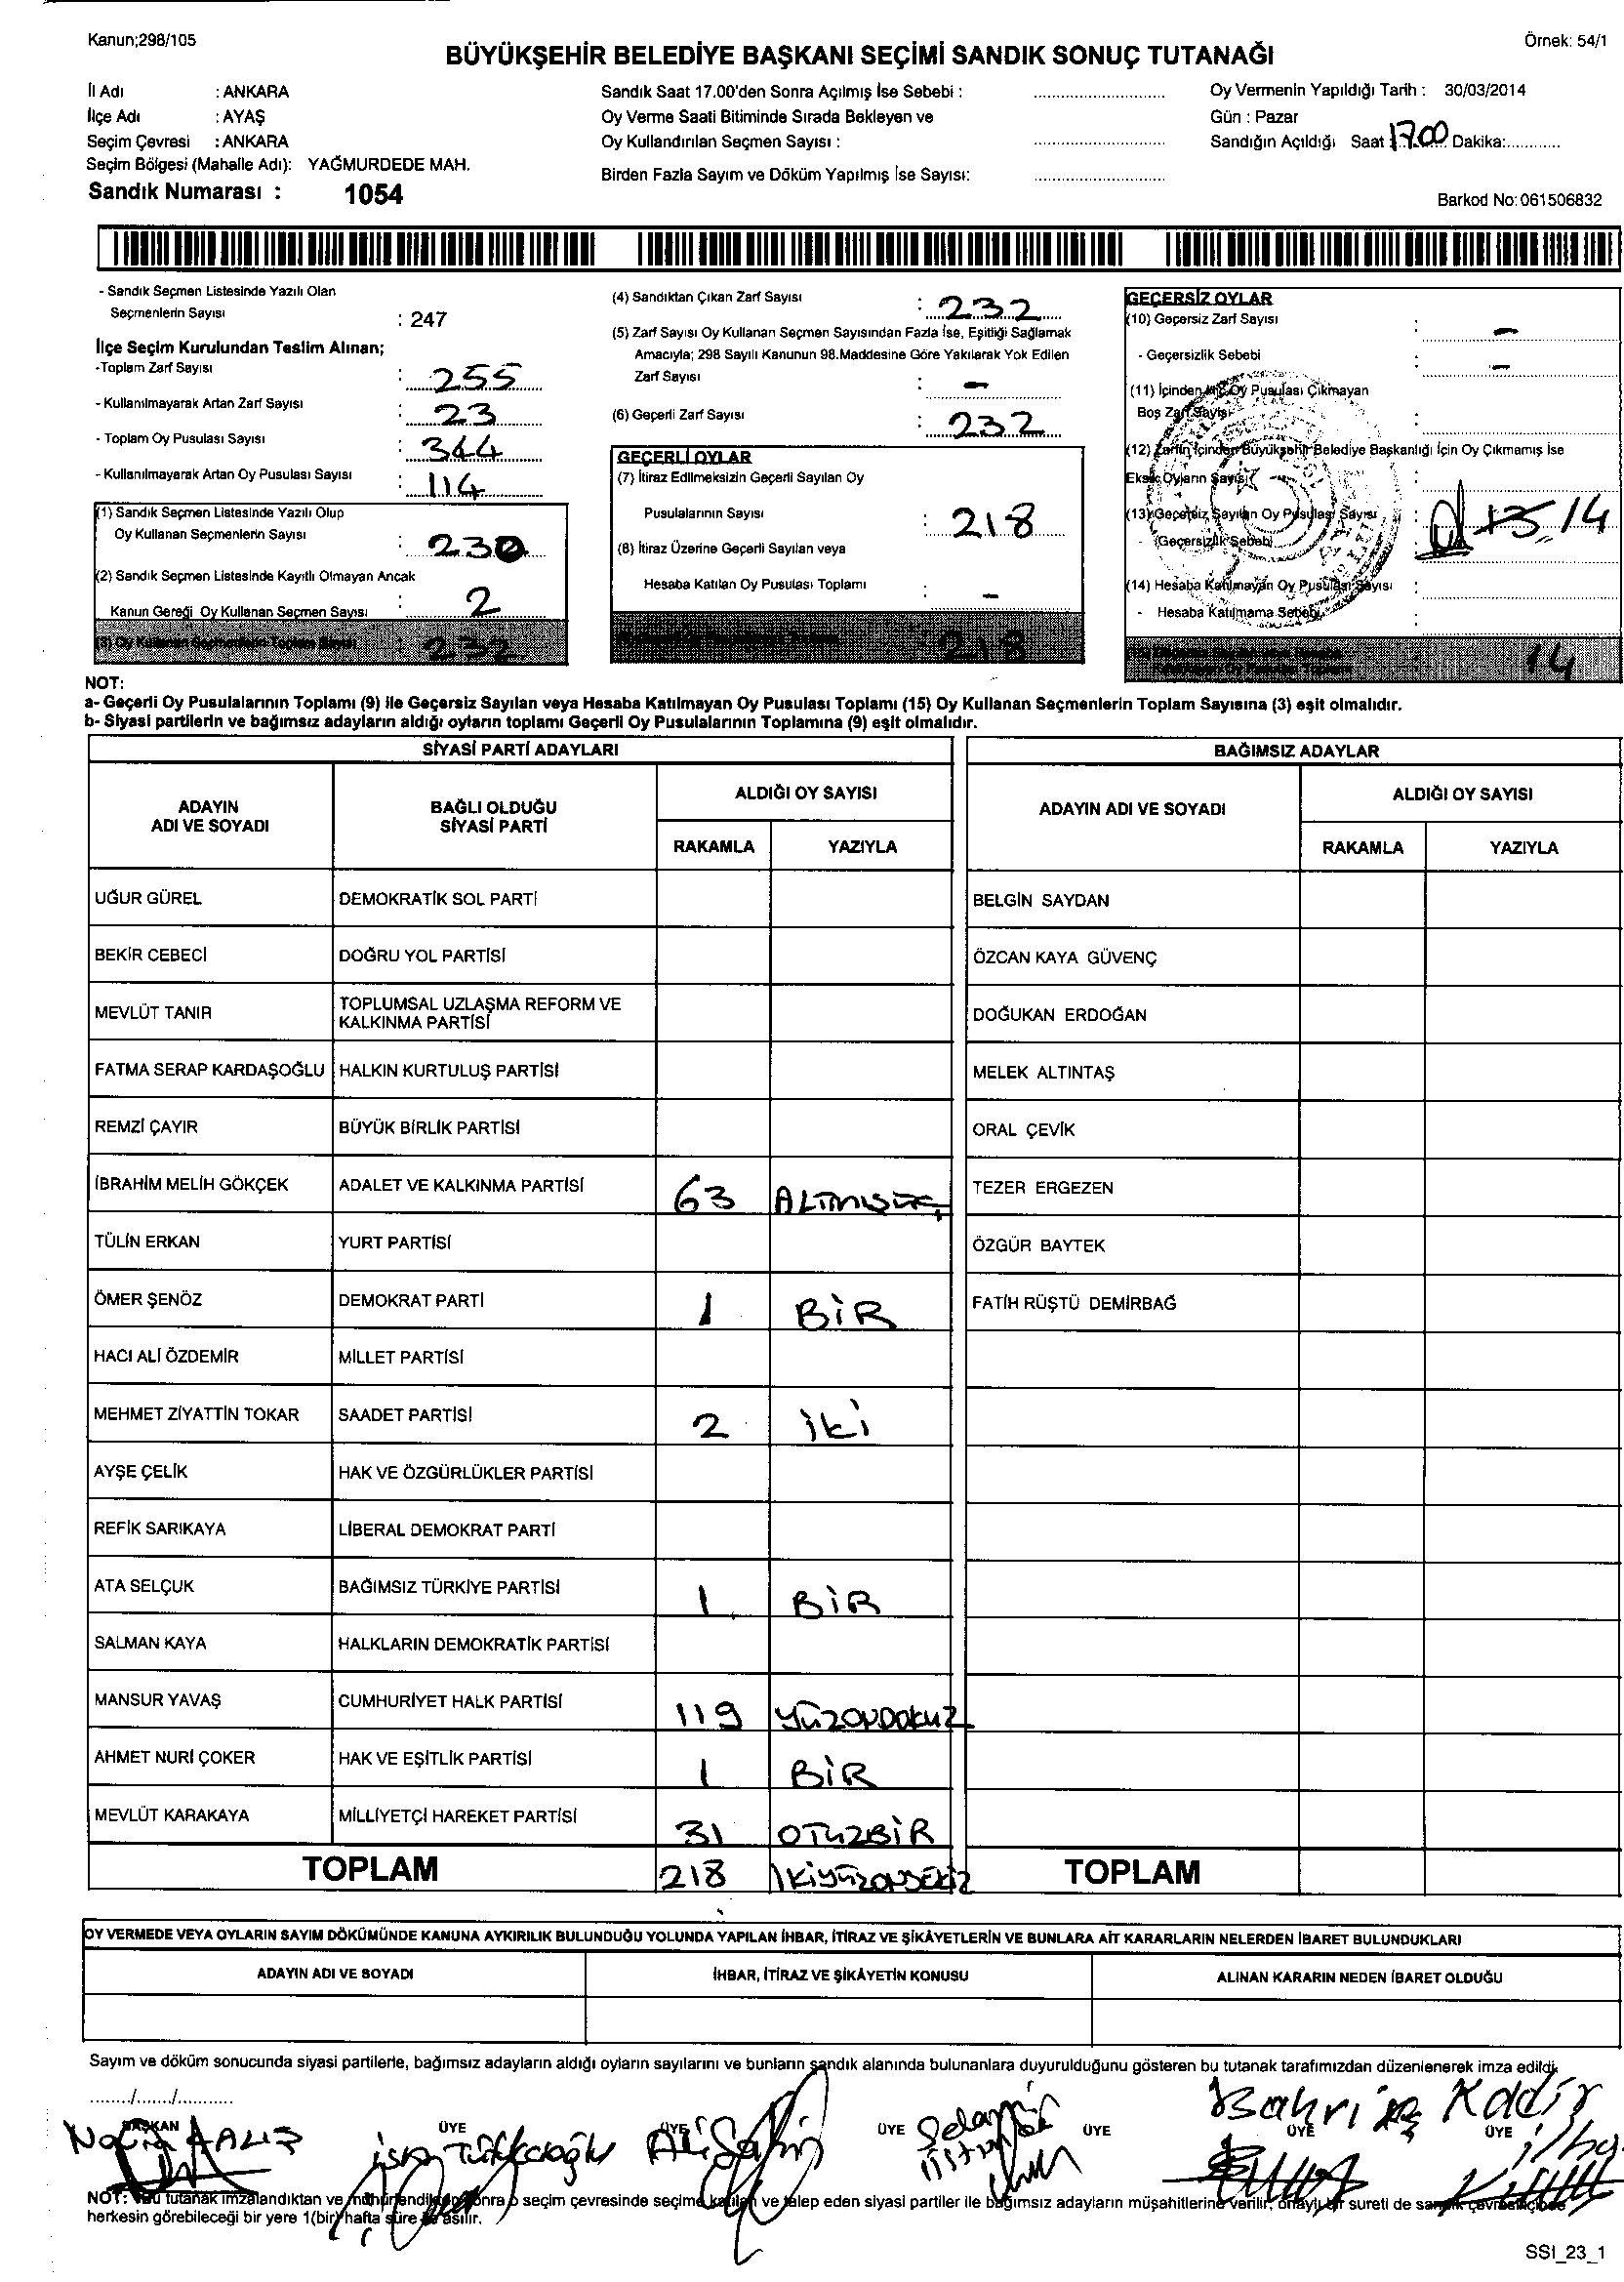 Kanun;298/105
Örnek: 54/1
BÜYÜKŞEHİR BELEDİYE BAŞKANI SEÇİMİ SANDIK SONUÇ TUTANAĞI
İl Adı : ANKARA
İlçe Adı : AYAŞ
Seçim Çevresi : ANKARA
Seçim Bölgesi (Mahalle Adı): YAĞMURDEDE MAH.
Sandık Numarası : 1054
Sandık Saat 17.00'den Sonra Açılmış İse Sebebi :
Oy Verme Saati Bitiminde Sırada Bekleyen ve
Oy Kullandırılan Seçmen Sayısı :
Birden Fazla Sayım ve Döküm Yapılmış İse Sayısı:
Oy Vermenin Yapıldığı Tarih : 30/03/2014
Gün : Pazar
Sandığın Açıldığı Saat : 17.00 Dakika:
Barkod No: 061506832
- Sandık Seçmen Listesinde Yazılı Olan
Seçmenlerin Sayısı : 247
İlçe Seçim Kurulundan Teslim Alınan;
-Toplam Zarf Sayısı : 255
- Kullanılmayarak Artan Zarf Sayısı : 23
- Toplam Oy Pusulası Sayısı : 344
- Kullanılmayarak Artan Oy Pusulası Sayısı : 114
(1) Sandık Seçmen Listesinde Yazılı Olup
Oy Kullanan Seçmenlerin Sayısı : 230
(2) Sandık Seçmen Listesinde Kayıtlı Olmayan Ancak
Kanun Gereği Oy Kullanan Seçmen Sayısı : 2
(3) Oy Kullanan Seçmenlerin Toplam Sayısı : 232
(4) Sandıktan Çıkan Zarf Sayısı : 232
(5) Zarf Sayısı Oy Kullanan Seçmen Sayısından Fazla İse, Eşitliği Sağlamak
Amacıyla; 298 Sayılı Kanunun 98.Maddesine Göre Yakılarak Yok Edilen
Zarf Sayısı : -
(6) Geçerli Zarf Sayısı : 232
GEÇERLİ OYLAR
(7) İtiraz Edilmeksizin Geçerli Sayılan Oy
Pusulalarının Sayısı : 218
(8) İtiraz Üzerine Geçerli Sayılan veya
Hesaba Katılan Oy Pusulası Toplamı : -
218
GEÇERSİZ OYLAR
(10) Geçersiz Zarf Sayısı : -
- Geçersizlik Sebebi : -
(11) İçinden Hiç Oy Pusulası Çıkmayan
Boş Zarf Sayısı :
(12) Zarfın İçinden Büyükşehir Belediye Başkanlığı İçin Oy Çıkmamış İse
Eksik Oyların Sayısı :
(13) Geçersiz Sayılan Oy Pusulası Sayısı : 14
- Geçersizlik Sebebi
(14) Hesaba Katılmayan Oy Pusulası Sayısı :
- Hesaba Katılmama Sebebi :
14
NOT:
a- Geçerli Oy Pusulalarının Toplamı (9) ile Geçersiz Sayılan veya Hesaba Katılmayan Oy Pusulası Toplamı (15) Oy Kullanan Seçmenlerin Toplam Sayısına (3) eşit olmalıdır.
b- Siyasi partilerin ve bağımsız adayların aldığı oyların toplamı Geçerli Oy Pusulalarının Toplamına (9) eşit olmalıdır.
SİYASİ PARTİ ADAYLARI
ADAYIN ADI VE SOYADI
BAĞLI OLDUĞU SİYASİ PARTİ
ALDIĞI OY SAYISI
RAKAMLA YAZIYLA
UĞUR GÜREL DEMOKRATİK SOL PARTİ
BEKİR CEBECİ DOĞRU YOL PARTİSİ
MEVLÜT TANIR TOPLUMSAL UZLAŞMA REFORM VE
KALKINMA PARTİSİ
FATMA SERAP KARDAŞOĞLU HALKIN KURTULUŞ PARTİSİ
REMZİ ÇAYIR BÜYÜK BİRLİK PARTİSİ
İBRAHİM MELİH GÖKÇEK ADALET VE KALKINMA PARTİSİ 63
TÜLİN ERKAN YURT PARTİSİ
ÖMER ŞENÖZ DEMOKRAT PARTİ 1 BİR
HACI ALİ ÖZDEMİR MİLLET PARTİSİ
MEHMET ZİYATTİN TOKAR SAADET PARTİSİ 2 iki
AYŞE ÇELİK HAK VE ÖZGÜRLÜKLER PARTİSİ
REFİK SARIKAYA LİBERAL DEMOKRAT PARTİ
ATA SELÇUK BAĞIMSIZ TÜRKİYE PARTİSİ 1 BİR
SALMAN KAYA HALKLARIN DEMOKRATİK PARTİSİ
MANSUR YAVAŞ CUMHURİYET HALK PARTİSİ 119 YÜZONDOKUZ
AHMET NURİ ÇOKER HAK VE EŞİTLİK PARTİSİ 1 BİR
MEVLÜT KARAKAYA MİLLİYETÇİ HAREKET PARTİSİ 31 OTUZBİR
TOPLAM 218 İKİYÜZONSEKİZ
BAĞIMSIZ ADAYLAR
ADAYIN ADI VE SOYADI
ALDIĞI OY SAYISI
RAKAMLA YAZIYLA
BELGİN SAYDAN
ÖZCAN KAYA GÜVENÇ
DOĞUKAN ERDOĞAN
MELEK ALTINTAŞ
ORAL ÇEVİK
TEZER ERGEZEN
ÖZGÜR BAYTEK
FATİH RÜŞTÜ DEMİRBAĞ
TOPLAM
OY VERMEDE VEYA OYLARIN SAYIM DÖKÜMÜNDE KANUNA AYKIRILIK BULUNDUĞU YOLUNDA YAPILAN İHBAR, İTİRAZ VE ŞİKÂYETLERİN VE BUNLARA AİT KARARLARIN NELERDEN İBARET BULUNDUKLARI
ADAYIN ADI VE SOYADI İHBAR, İTİRAZ VE ŞİKÂYETİN KONUSU ALINAN KARARIN NEDEN İBARET OLDUĞU
Sayım ve döküm sonucunda siyasi partilerle, bağımsız adayların aldığı oyların sayılarını ve bunların sandık alanında bulunanlara duyurulduğunu gösteren bu tutanak tarafımızdan düzenlenerek imza edildi.
......../......./...........
BAŞKAN ÜYE ÜYE ÜYE ÜYE ÜYE ÜYE
Ali Şahin Bahri Kadir
NOT: İşbu tutanak imzalandıktan ve mühürlendikten sonra o seçim çevresinde seçime katılan ve talep eden siyasi partiler ile bağımsız adayların müşahitlerine verilir, onaylı bir sureti de sandık çevresinde
herkesin görebileceği bir yere 1(bir) hafta süre ile asılır.
SSI_23_1